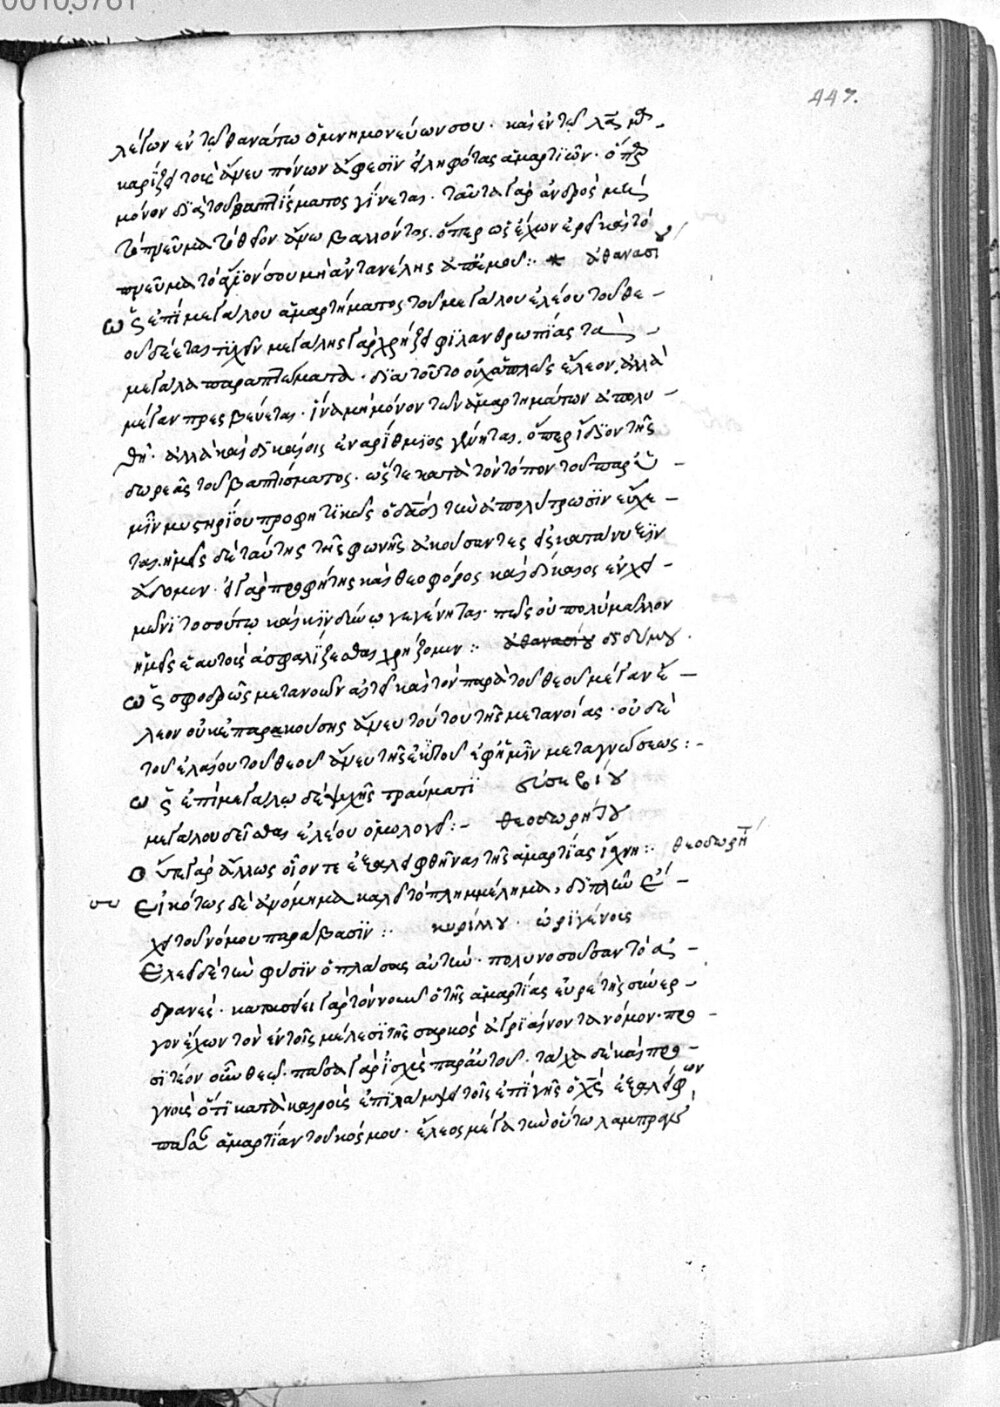 00105781
447.
λέγων ἐν τῷ θανάτῳ ὁ μνημονεύων σου· καὶ ἐν τῷ
καρίζει τοὺς ἄνευ πόνων ἄφεσιν εἰληφότας ἁμαρτιῶν· ὅπερ
μόνον διὰ τοῦ βαπτίσματος γίνεται· ταῦτα γὰρ ἀνδρὸς
τὸ πνεῦμα τὸ θεῖον ἄνω βάλλοντος· ὅπερ ὡς ἔχων ἐρεῖ καὶ τὸ
πνεῦμα τὸ ἅγιόν σου μὴ ἀντανέλῃς ἀπ' ἐμοῦ :· ἀθανασίου
ὡς ἐπὶ μεγάλου ἁμαρτήματος τοῦ μεγάλου ἐλέου τοῦ θε-
οῦ δέεται τυχεῖν μεγάλης γὰρ χρήζει φιλανθρωπίας τὰ
μεγάλα παραπτώματα· διὰ τοῦτο οὐχ ἁπλῶς ἔλεον ἀλλὰ
μέγαν πρεσβεύεται· ἵνα μὴ μόνον τῶν ἁμαρτημάτων ἀπολυ-
θῇ· ἀλλὰ καὶ δικαίοις ἐναρίθμιος γένηται, ὅπερ ἴδιον τῆς
δωρεᾶς τοῦ βαπτίσματος· ὥστε κατὰ τὸν τόπον τοῦ παρ'
μῖν μυστηρίου προφητικῶς ὁ δαδ τὴν ἀπολύτρωσιν εὔχε-
ται, ἡμεῖς δὲ ταύτης τῆς φωνῆς ἀκούσαντες εἰς κατάνυξιν
ᾄδομεν· εἰ γὰρ προφήτης καὶ θεοφόρος καὶ δίκαιος ἐν χει-
μῶνι τοσούτῳ καὶ κινδύνῳ γεγένηται· πῶς οὐ πολὺ μᾶλλον
ἡμεῖς ἑαυτοὺς ἀσφαλίζεσθαι χρήζομεν :· ἀθανασίου διδύμου.
ὡς σφοδρῶς μετανοῶν αἰτεῖ καὶ τὸν παρὰ τοῦ θεοῦ μέγαν ἔ-
λεον οὐκ ἐπαρακούσης ἄνευ τούτου τῆς μετανοίας· οὐδὲ
τοῦ ἐλαίου τοῦ θεοῦ ἄνευ τῆς ἐκ τοῦ ἐφ' ἡμῖν μεταγνώσεως :-
ὡς ἐπὶ μεγάλῳ δὲ ψυχῆς τραύματι
μεγάλου δεῖσθαι ἐλέου ὁμολογεῖ :- θεοδωρήτου
οὔτε γὰρ ἄλλως οἷόν τε ἐξαλειφθῆναι τῆς ἁμαρτίας ἴχνη :· θεοδωρήτ
εἰκότως δὲ ἀνόμημα καλεῖ τὸ πλημμέλημα, διπλῶν
χε τοῦ νόμου παράβασιν :· κυρίλλου· ὠριγένους
ἐλεεῖ δὲ τὴν φύσιν ὁ πλάσας αὐτήν· πολὺ νοσοῦσαν τὸ ἀ-
δρανές· καταστέλλει γὰρ τὸν νοῦν ὁ τῆς ἁμαρτίας εὗρε τῆς σύνερ-
γον ἔχων τὸν ἐν τοῖς μέλεσι τῆς σαρκὸς ἀγριαίνοντα νόμον· προ
σιτέον οὖν θεῷ· πᾶσα γὰρ ἰσχὺς παρ' αὐτοῦ· τάχα δὲ καὶ προ-
γνοὺς ὅτι κατὰ καιροὺς ἐπιλάμψει τοῖς ἐπὶ γῆς ὁ χς ἐξαλείφων
πᾶσαν ἁμαρτίαν τοῦ κόσμου· ἔλεος μέγα τὴν οὕτω λαμπρὰν